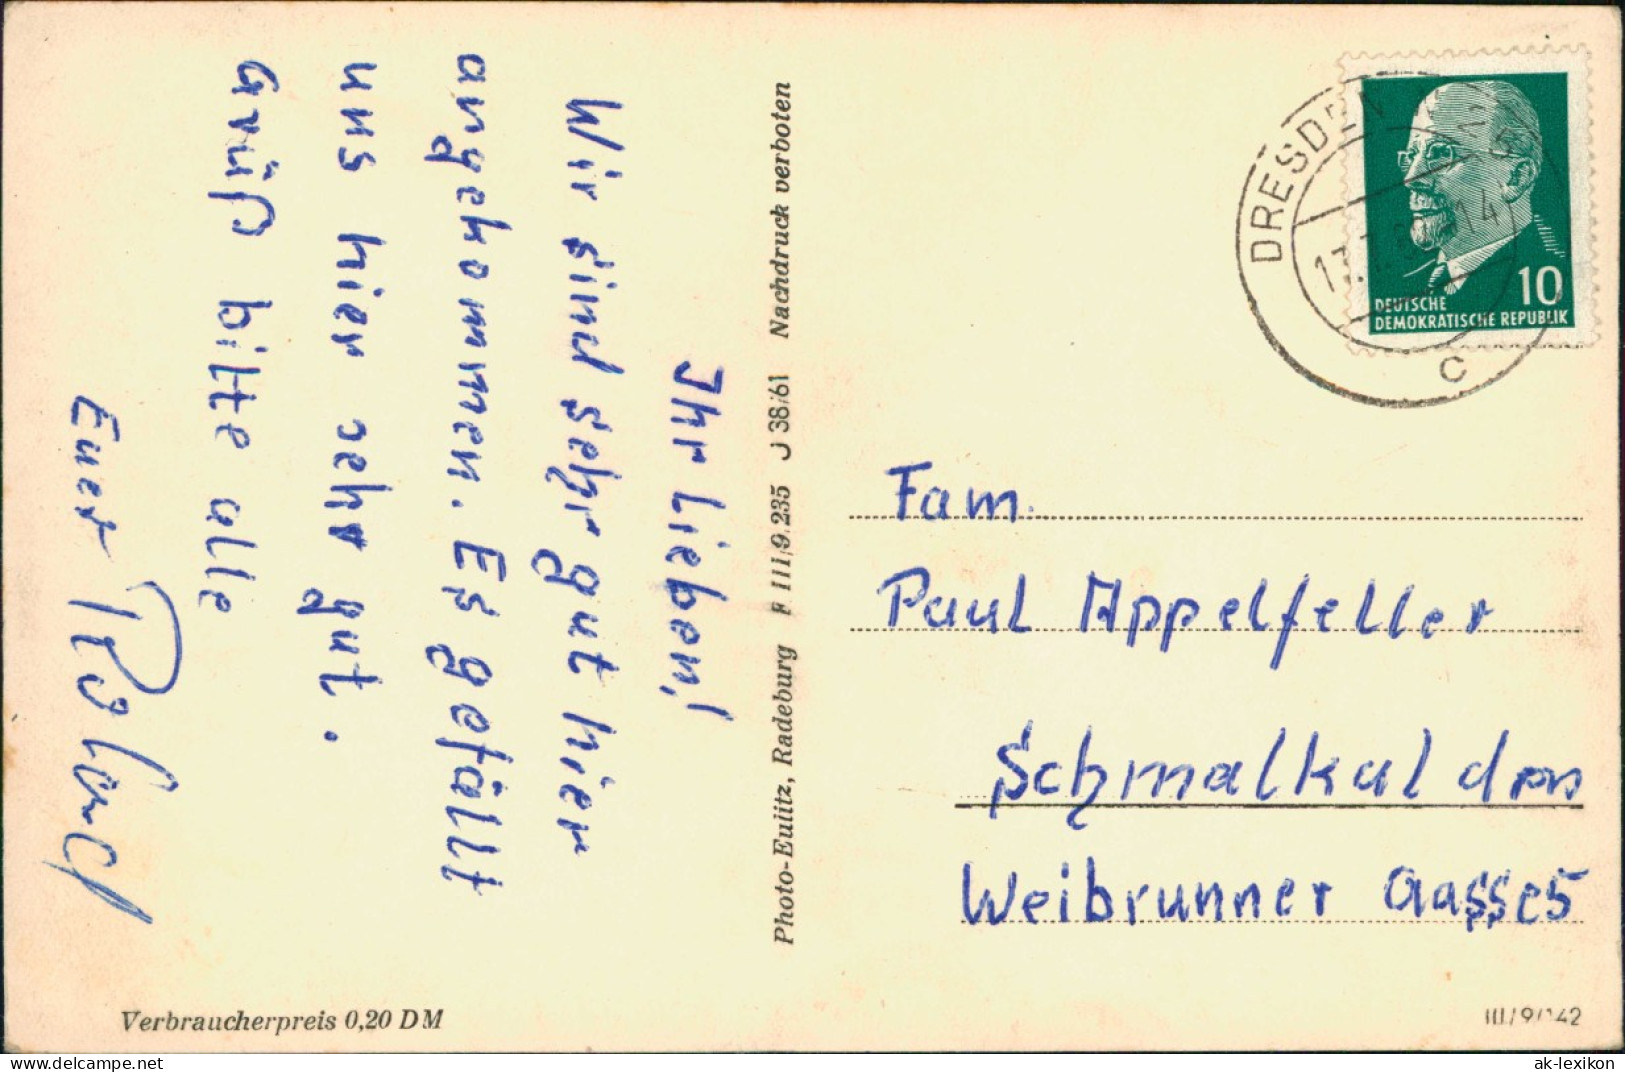 Ihr Lieben!
Wir sind sehr gut hier
angekommen. Es gefällt
uns hier sehr gut.
Grüß bitte alle
Euer Roland
Verbraucherpreis 0,20 DM
Photo-Eulitz, Radeburg F III/9/235 J 38/61 Nachdruck verboten
DRESDEN
14
C
10
DEUTSCHE
DEMOKRATISCHE REPUBLIK
Fam.
Paul Appelfeller
Schmalkalden
Weibrunner Gasse 5
www.delcampe.net
ak-lexikon